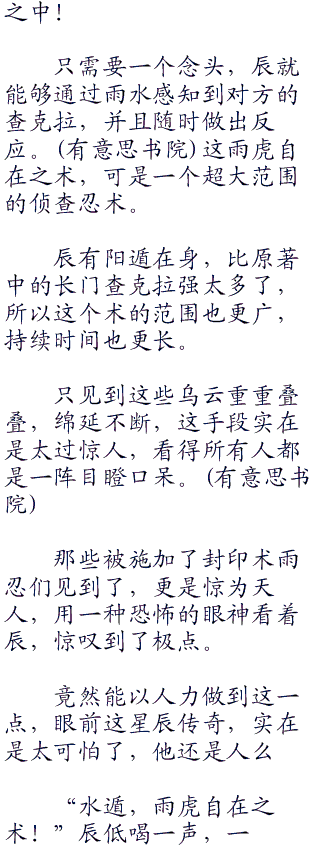 之中！
只需要一个念头，辰就
能够通过雨水感知到对方的
查克拉，并且随时做出反
应。(有意思书院)这雨虎自
在之术，可是一个超大范围
的侦查忍术。
辰有阳遁在身，比原著
中的长门查克拉强太多了，
所以这个术的范围也更广，
持续时间也更长。
只见到这些乌云重重叠
叠，绵延不断，这手段实在
是太过惊人，看得所有人都
是一阵目瞪口呆。(有意思书
院)
那些被施加了封印术雨
忍们见到了，更是惊为天
人，用一种恐怖的眼神看着
辰，惊叹到了极点。
竟然能以人力做到这一
点，眼前这星辰传奇，实在
是太可怕了，他还是人么
“水遁，雨虎自在之
术！”辰低喝一声，一